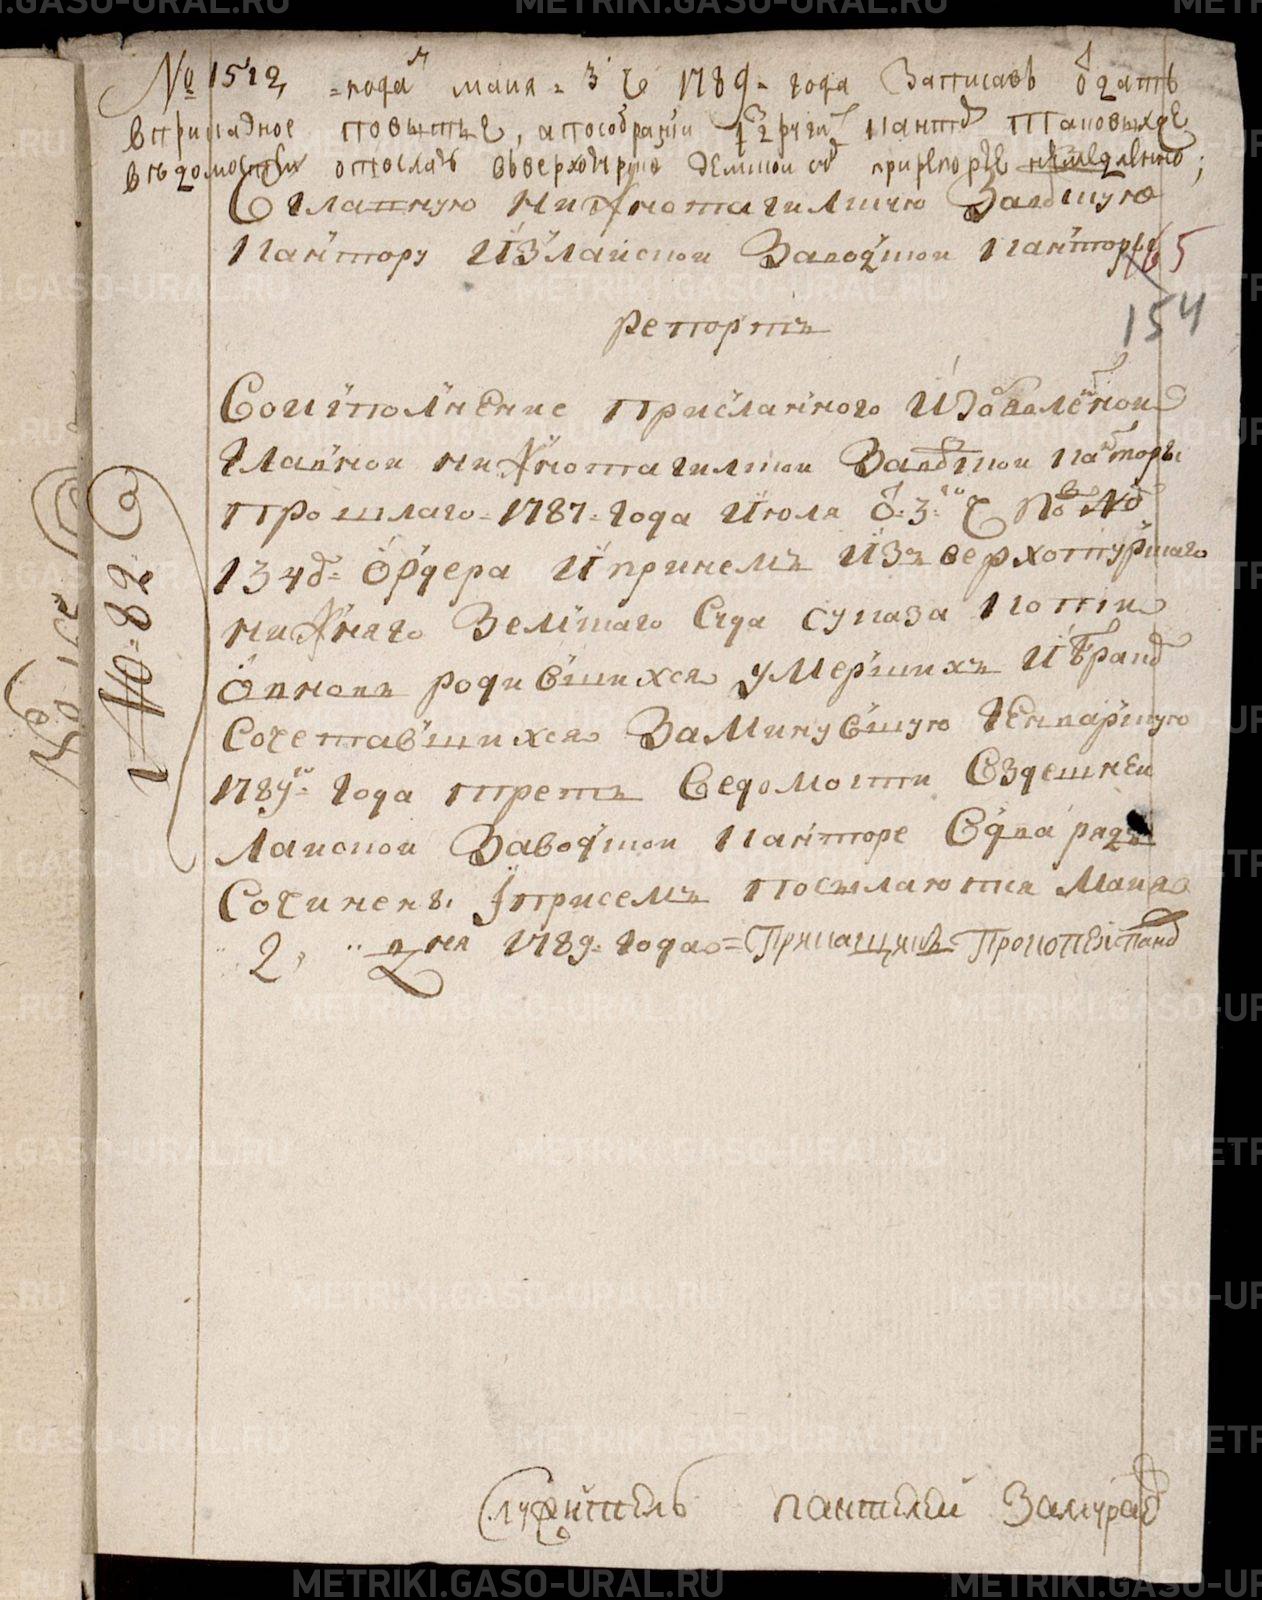 № 1512, подан маия 3 ч 1789 года Записавъ отдать
в приказное повытье, а по собрании из других кантор таковых же
ведомостей отослать в верхотурской земской суд при репорте немедленно;
В главную нижнотагилскую Заводскую
кантору из Лайской Заводской канторы
165
154
репортъ
Во исполнение присланного из оной главной
Главной нижнотагилской Заводской канторы
прошлаго 1787 года июля от 3го ч под №
1348 ордера и при нем из верхотурскаго
нижняго Земскаго Суда с указа копии
о вновь родившихся умерших и браком
Сочетавшихся За минувшую генварскую
1789го года треть Ведомости в здешней
Лайской Заводской канторе
Сочинены и при сем посылаются Маия
2, дня 1789 года
№ 82
Служитель Пантелей
METRIKI.GASO-URAL.RU